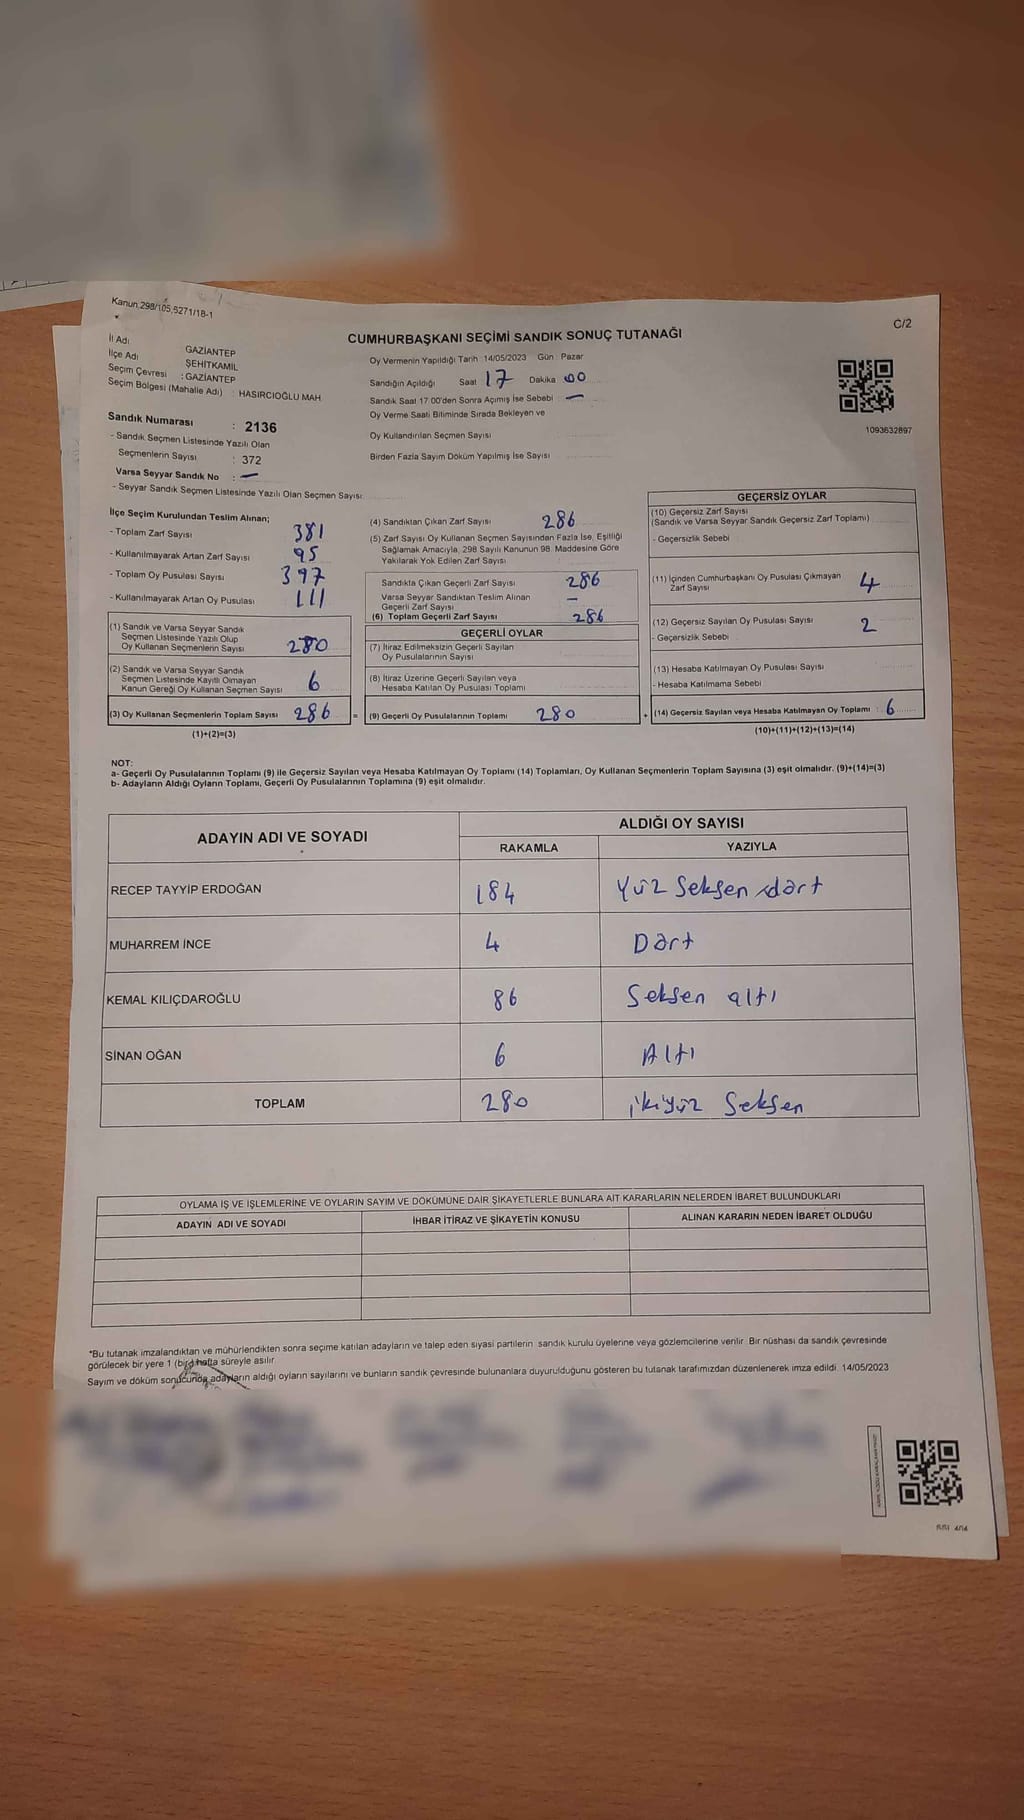 Kanun:298/105,6271/18-1
C/2
CUMHURBAŞKANI SEÇİMİ SANDIK SONUÇ TUTANAĞI
İl Adı GAZİANTEP
İlçe Adı ŞEHİTKAMİL
Seçim Çevresi : GAZİANTEP
Seçim Bölgesi (Mahalle Adı) : HASIRCIOĞLU MAH.
Oy Vermenin Yapıldığı Tarih 14/05/2023 Gün : Pazar
Sandığın Açıldığı Saat 17 Dakika 00
Sandık Saat 17:00'den Sonra Açımış İse Sebebi : —
Oy Verme Saati Bitiminde Sırada Bekleyen ve
Oy Kullandırılan Seçmen Sayısı
Birden Fazla Sayım Döküm Yapılmış İse Sayısı
1093632897
Sandık Numarası : 2136
- Sandık Seçmen Listesinde Yazılı Olan
Seçmenlerin Sayısı : 372
Varsa Seyyar Sandık No : —
- Seyyar Sandık Seçmen Listesinde Yazılı Olan Seçmen Sayısı
İlçe Seçim Kurulundan Teslim Alınan;
- Toplam Zarf Sayısı 381
- Kullanılmayarak Artan Zarf Sayısı 95
- Toplam Oy Pusulası Sayısı 397
- Kullanılmayarak Artan Oy Pusulası 111
(1) Sandık ve Varsa Seyyar Sandık
Seçmen Listesinde Yazılı Olup
Oy Kullanan Seçmenlerin Sayısı 280
(2) Sandık ve Varsa Seyyar Sandık
Seçmen Listesinde Kayıtlı Olmayan
Kanun Gereği Oy Kullanan Seçmen Sayısı 6
(3) Oy Kullanan Seçmenlerin Toplam Sayısı 286
(1)+(2)=(3)
(4) Sandıktan Çıkan Zarf Sayısı 286
(5) Zarf Sayısı Oy Kullanan Seçmen Sayısından Fazla İse, Eşitliği
Sağlamak Amacıyla, 298 Sayılı Kanunun 98. Maddesine Göre
Yakılarak Yok Edilen Zarf Sayısı
Sandıkta Çıkan Geçerli Zarf Sayısı 286
Varsa Seyyar Sandıktan Teslim Alınan
Geçerli Zarf Sayısı —
(6) Toplam Geçerli Zarf Sayısı 286
GEÇERLİ OYLAR
(7) İtiraz Edilmeksizin Geçerli Sayılan
Oy Pusulalarının Sayısı
(8) İtiraz Üzerine Geçerli Sayılan veya
Hesaba Katılan Oy Pusulası Toplamı
= (9) Geçerli Oy Pusulalarının Toplamı 280
GEÇERSİZ OYLAR
(10) Geçersiz Zarf Sayısı
(Sandık ve Varsa Seyyar Sandık Geçersiz Zarf Toplamı)
- Geçersizlik Sebebi
(11) İçinden Cumhurbaşkanı Oy Pusulası Çıkmayan
Zarf Sayısı 4
(12) Geçersiz Sayılan Oy Pusulası Sayısı 2
- Geçersizlik Sebebi
(13) Hesaba Katılmayan Oy Pusulası Sayısı
- Hesaba Katılmama Sebebi
+ (14) Geçersiz Sayılan veya Hesaba Katılmayan Oy Toplamı : 6
(10)+(11)+(12)+(13)=(14)
NOT:
a- Geçerli Oy Pusulalarının Toplamı (9) ile Geçersiz Sayılan veya Hesaba Katılmayan Oy Toplamı (14) Toplamları, Oy Kullanan Seçmenlerin Toplam Sayısına (3) eşit olmalıdır. (9)+(14)=(3)
b- Adayların Aldığı Oyların Toplamı, Geçerli Oy Pusulalarının Toplamına (9) eşit olmalıdır.
ADAYIN ADI VE SOYADI
ALDIĞI OY SAYISI
RAKAMLA YAZIYLA
RECEP TAYYİP ERDOĞAN 184 Yüz Seksen dört
MUHARREM İNCE 4 Dört
KEMAL KILIÇDAROĞLU 86 Seksen altı
SİNAN OĞAN 6 Altı
TOPLAM 280 ikiyüz Seksen
OYLAMA İŞ VE İŞLEMLERİNE VE OYLARIN SAYIM VE DÖKÜMÜNE DAİR ŞİKAYETLERLE BUNLARA AİT KARARLARIN NELERDEN İBARET BULUNDUKLARI
ADAYIN ADI VE SOYADI İHBAR İTİRAZ VE ŞİKAYETİN KONUSU ALINAN KARARIN NEDEN İBARET OLDUĞU
*Bu tutanak imzalandıktan ve mühürlendikten sonra seçime katılan adayların ve talep eden siyasi partilerin sandık kurulu üyelerine veya gözlemcilerine verilir. Bir nüshası da sandık çevresinde
görülecek bir yere 1 (bir) hafta süreyle asılır.
Sayım ve döküm sonucunda adayların aldığı oyların sayılarını ve bunların sandık çevresinde bulunanlara duyurulduğunu gösteren bu tutanak tarafımızdan düzenlenerek imza edildi. 14/05/2023